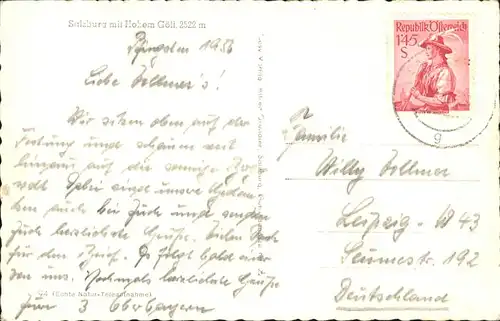 Salzburg mit Hohem Göll. 2522 m
Pfingsten 1956
Liebe Vollmer's!
Wir sitzen oben auf der
Festung und schauen weit
hinaus auf die
Dabei sind unsere Gedan-
ken auch bei Euch und senden
Euch herzlichste Grüße. Vielen Dank
für den Brief. Es folgt bald einer
von uns. Nochmals herzlichste Grüße
(Echte Natur-Teleaufnahme)
Eure 3 Oberbayern
Republik Österreich
1'45
S
g
Familie
Willy Vollmer
Leipzig - W 43
Seumestr. 192
Deutschland